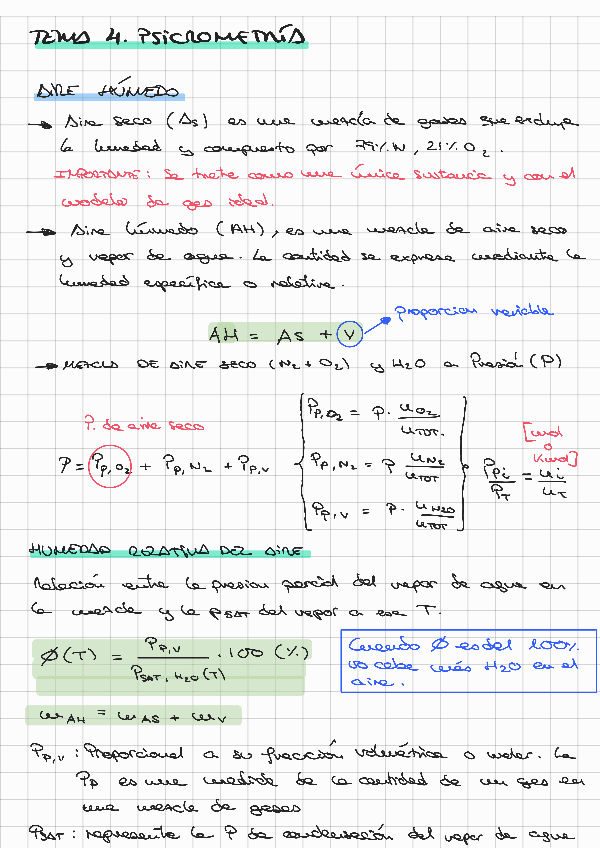 TEMA 4. PSICROMETRÍA
AIRE HÚMEDO
→ Aire seco (As) es una mezcla de gases que excluye
la humedad y compuesto por 79% N, 21% O₂.
IMPORTANTE: Se trata como una única sustancia y con el
modelo de gas ideal.
→ Aire húmedo (AH), es una mezcla de aire seco
y vapor de agua. La cantidad se expresa mediante la
humedad específica o relativa.
proporcion variable
AH = As + V
→ MEZCLA DE AIRE SECO (N₂ + O₂) y H₂O a Presión (P)
P. de aire seco
P = Pp,O₂ + Pp,N₂ + Pp,V
Pp,O₂ = P · nO₂ / nTOT.
Pp,N₂ = P nN₂ / nTOT
Pp,V = P · nH₂O / nTOT
Ppi / PT = ni / nT
[mol
o
Kmol]
HUMEDAD RELATIVA DEL AIRE
Relación entre la presion parcial del vapor de agua en
la mezcla y la PSAT del vapor a esa T.
Ø(T) = Pp,V / PSAT, H₂O (T) · 100 (%)
Cuando Ø es del 100%
no cabe más H₂O en el
aire.
mAH = mAS + mV
Pp,V : Proporcional a su fracción volumétrica o molar. La
Pp es una medida de la cantidad de un gas en
una mezcla de gases
PSAT : representa la P de condensación del vapor de agua